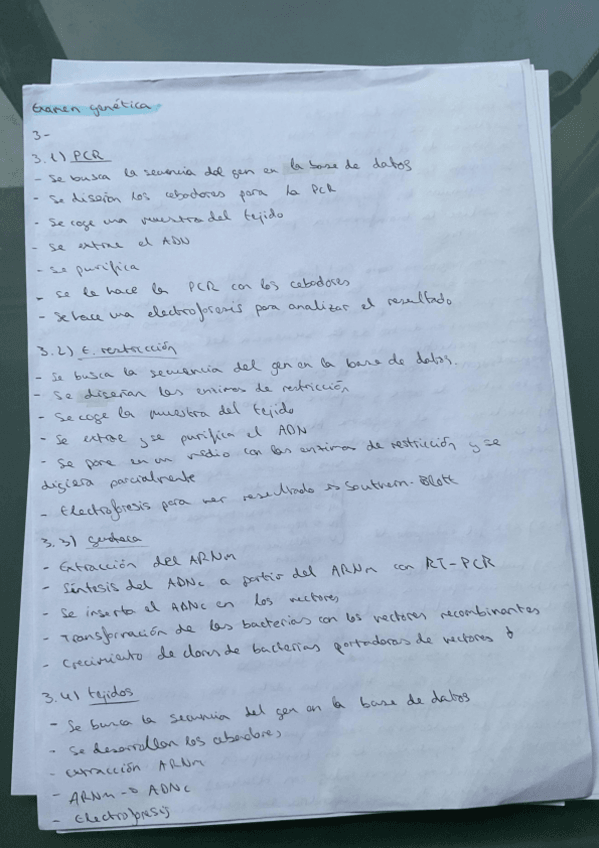 Examen genética
3-
3.1) PCR
- Se busca la secuencia del gen en la base de datos
- Se diseñan los cebadores para la PCR
- Se coge una muestra del tejido
- Se extrae el ADN
- Se purifica
- Se le hace la PCR con los cebadores
- Se hace una electroforesis para analizar el resultado
3.2) E. restricción
- Se busca la secuencia del gen en la base de datos.
- Se diseñan las enzimas de restricción
- Se coge la muestra del tejido
- Se extrae y se purifica el ADN
- Se pone en un medio con las enzimas de restricción y se
digiera parcialmente
- Electroforesis para ver resultado Southern-Blott
3.3) genoteca
- Extracción del ARNm
- Síntesis del ADNc a partir del ARNm con RT-PCR
- Se inserta el ADNc en los vectores
- Transformación de las bacterias con los vectores recombinantes
- Crecimiento de clones de bacterias portadoras de vectores
3.4) tejidos
- Se busca la secuencia del gen en la base de datos
- Se desarrollan los cebadores
- Extracción ARNm
- ARNm → ADNc
- Electroforesis